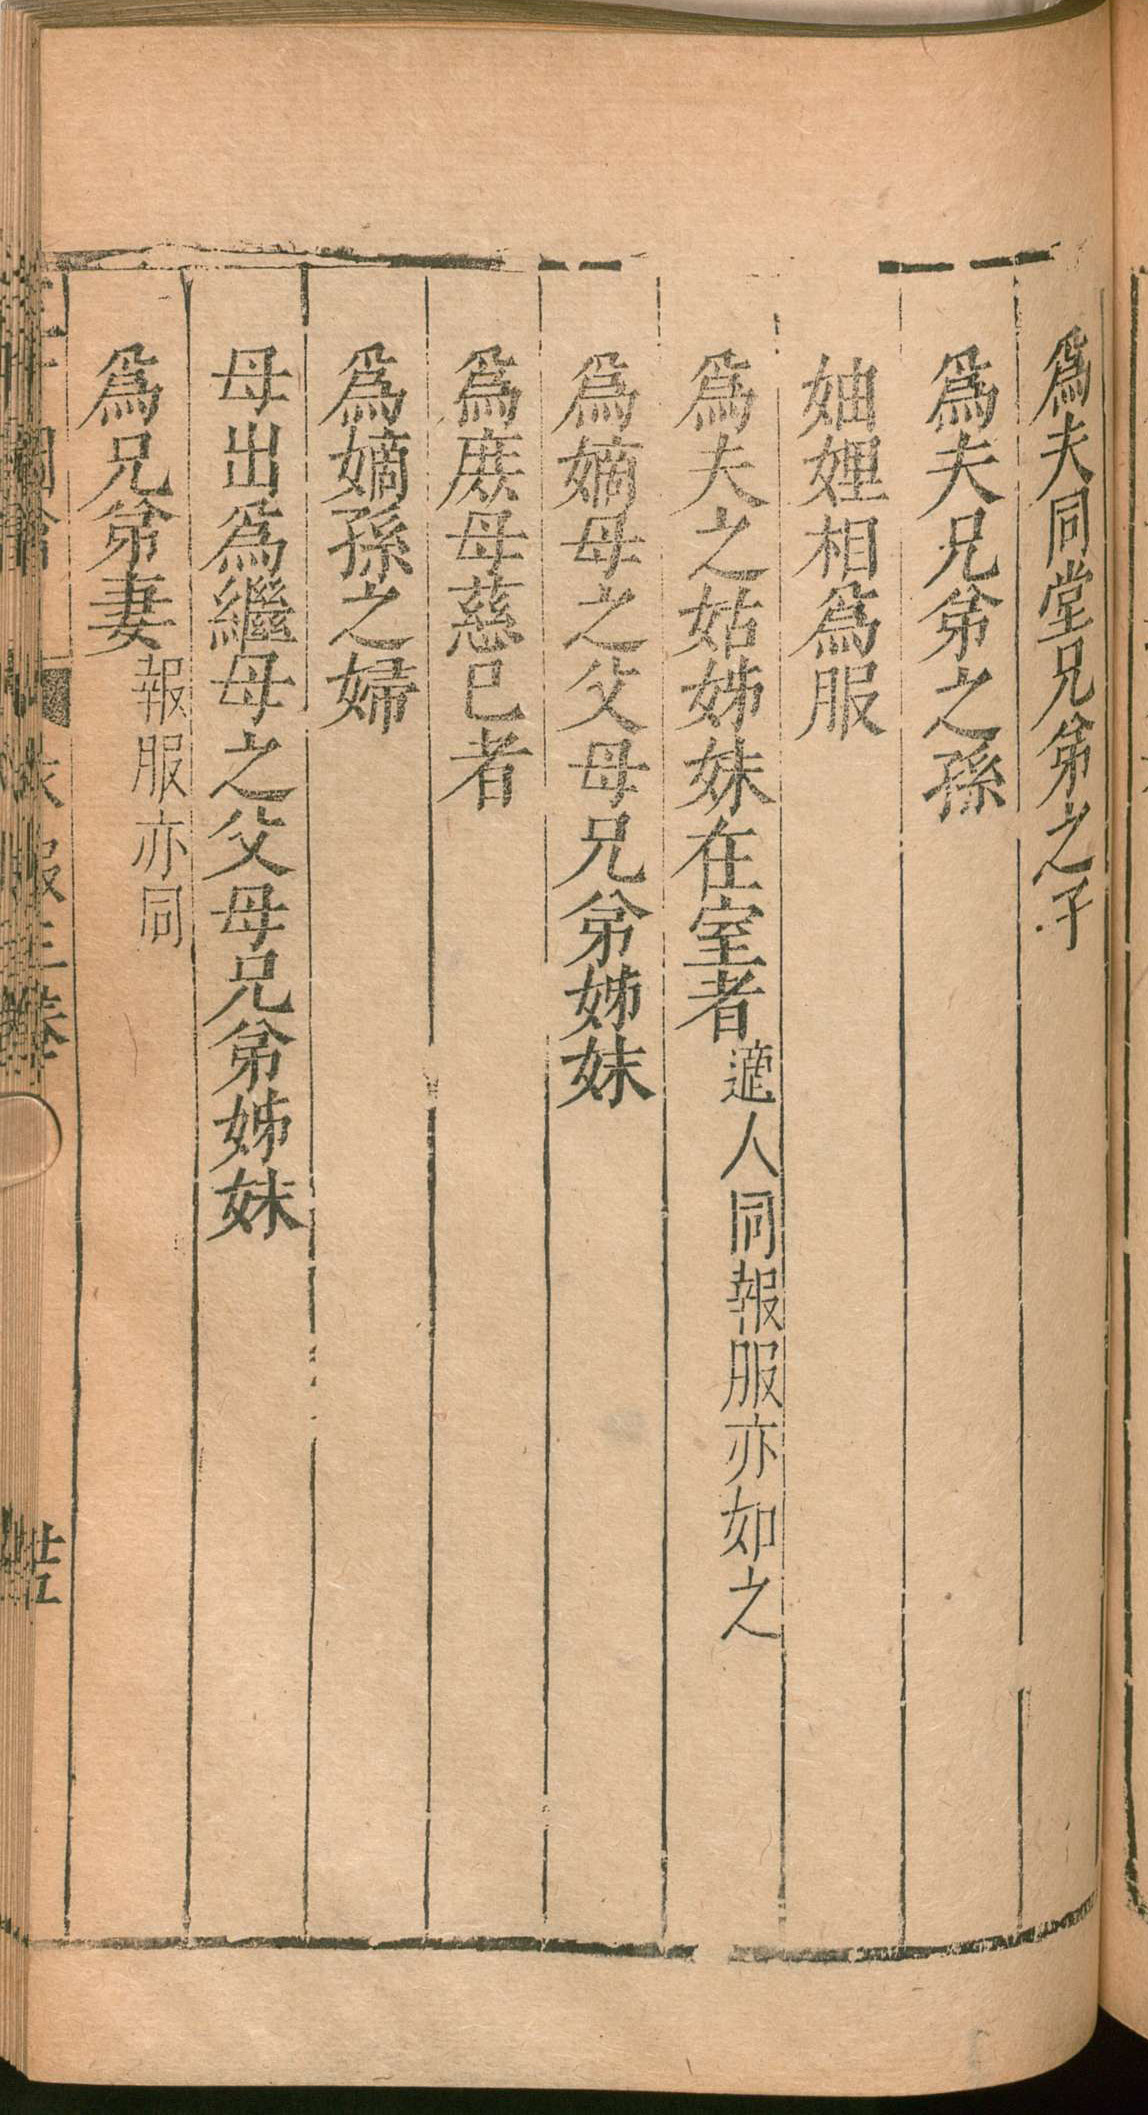 為夫同堂兄弟之子
為夫兄弟之孫
妯娌相為服
為夫之姑姊妹在室者適人同報服亦如之
為嫡母之父母兄弟姊妹
為庶母慈已者
為嫡孫之婦
母出為繼母之父母兄弟姊妹
為兄弟妻報服亦同